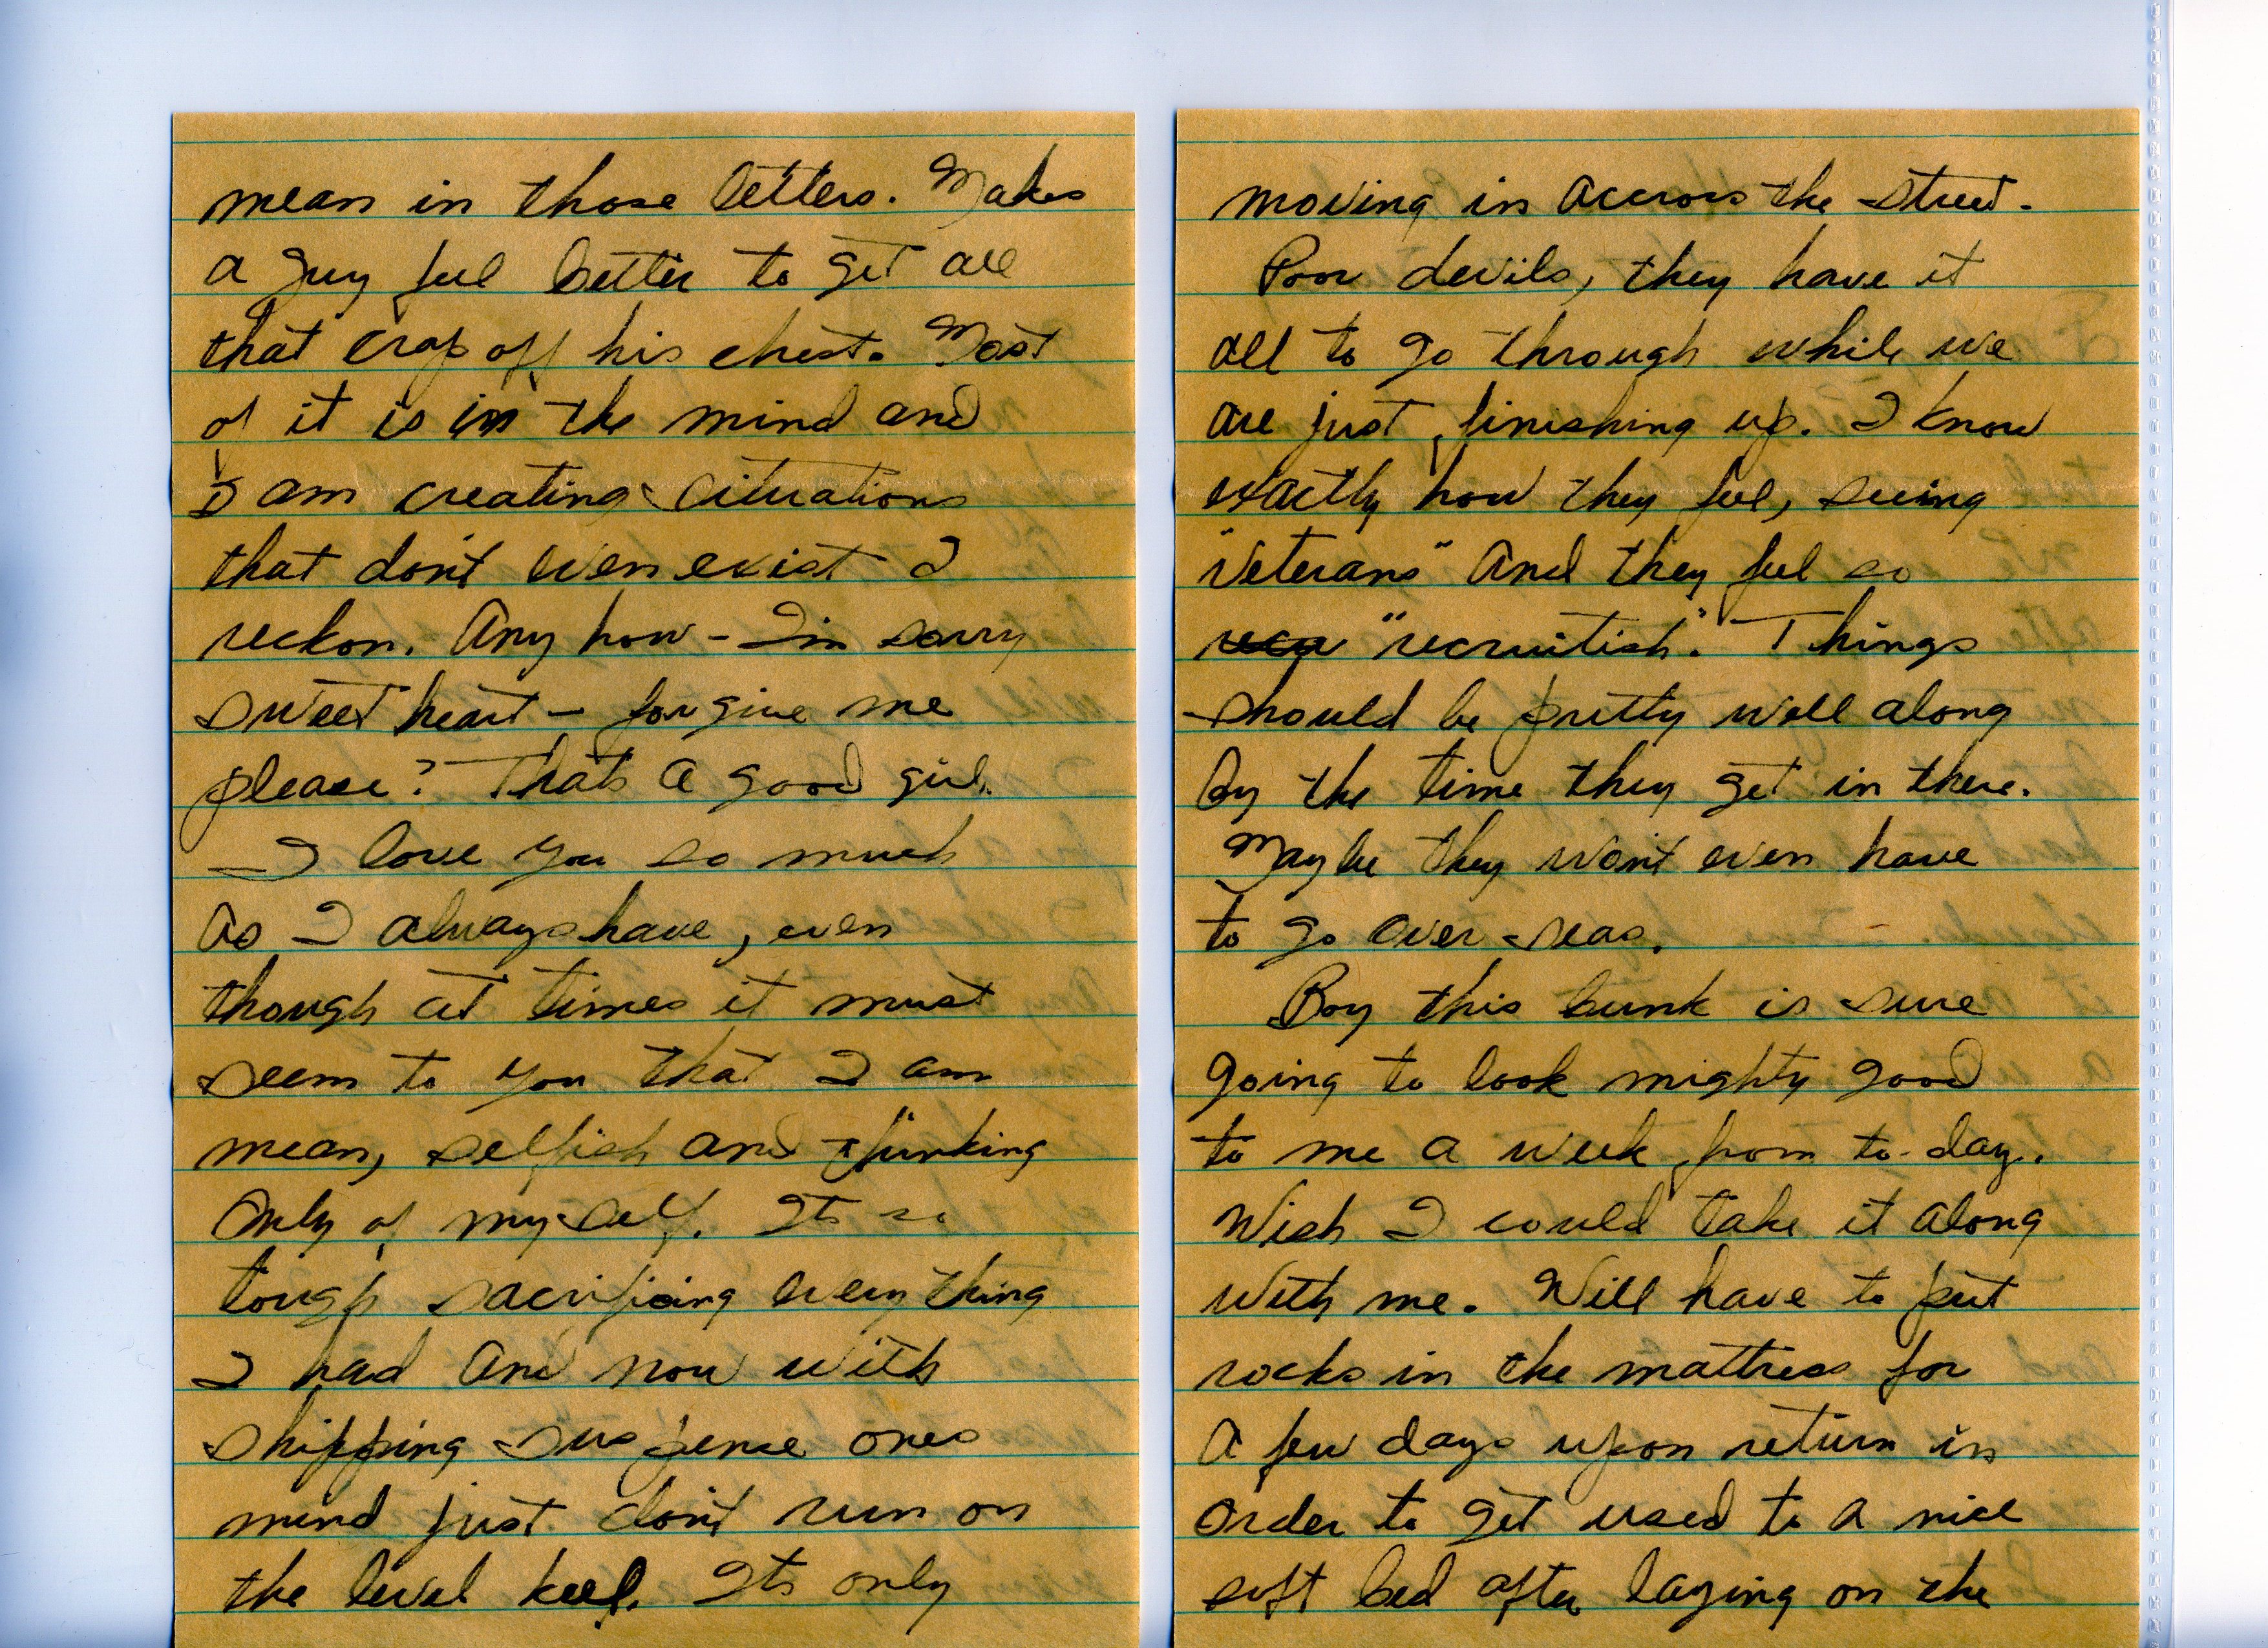 mean in those letters. Makes
a guy feel better to get all
that crap off his chest. Most
of it is in the mind and
I am creating situations
that don't even exist I
reckon. Any how - I'm sorry
sweet heart - forgive me
please? Thats a good girl.
- I love you so much
as I always have, even
though at times it must
seem to you that I am
mean, selfish and thinking
only of my self. Its so
tough sacrificing everything
I had and now with
shipping suspense ones
mind just don't run on
the level keel. Its only
moving in accross the street.
Poor devils, they have it
all to go through while we
are just finishing up. I know
exactly how they feel, seeing
"Veterans" and they feel so
"recruitish". Things
should be pretty well along
by the time they get in there.
Maybe they won't even have
to go over-seas.
Boy this bunk is sure
going to look mighty good
to me a week from to-day.
Wish I could take it along
with me. Will have to put
rocks in the mattress for
a few days upon return in
order to get used to a nice
soft bed after laying on the